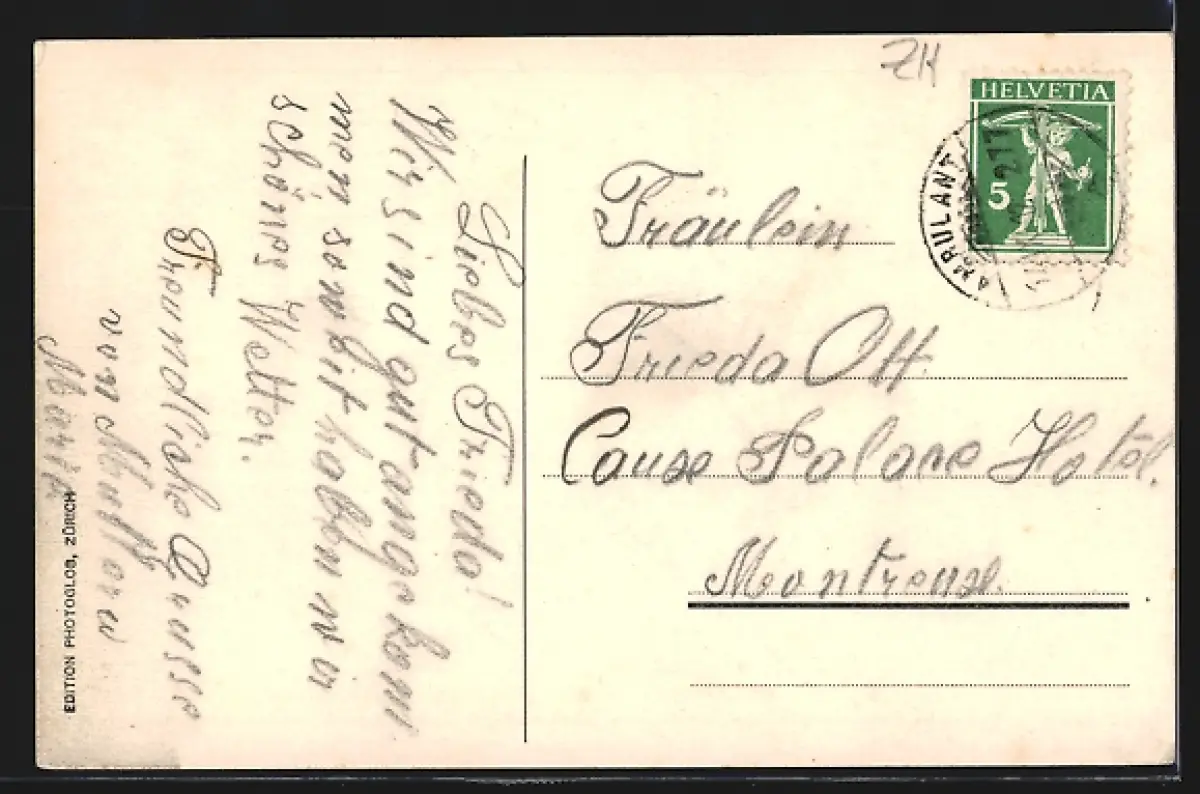 ZH
HELVETIA
5
AMBULANT
211
Fräulein
Frieda Ott.
Caux Palace Hotêl.
Montreux.
Liebes Frieda!
Wir sind gut angekom
men soweit haben wir
schönes Wetter.
Freundliche Grüsse
von Mutter u
Maria
EDITION PHOTOGLOB, ZÜRICH